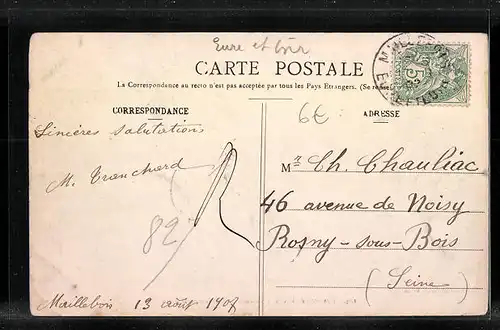 Eure et Loir
CARTE POSTALE
La Correspondance au recto n'est pas acceptée par tous les Pays Etrangers. (Se rense
CORRESPONDANCE
ADRESSE
6€
Sincères salutations
M. Tranchard
Mr Ch. Chauliac
46 avenue de Noisy
Rosny-sous-Bois
(Seine)
82
Maillebois 13 août 1907
5